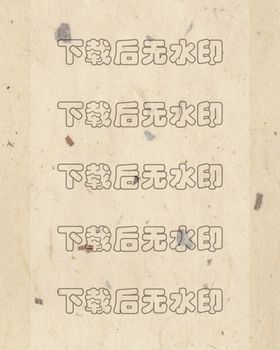 下载后无水印
下载后无水印
下载后无水印
下载后无水印
下载后无水印